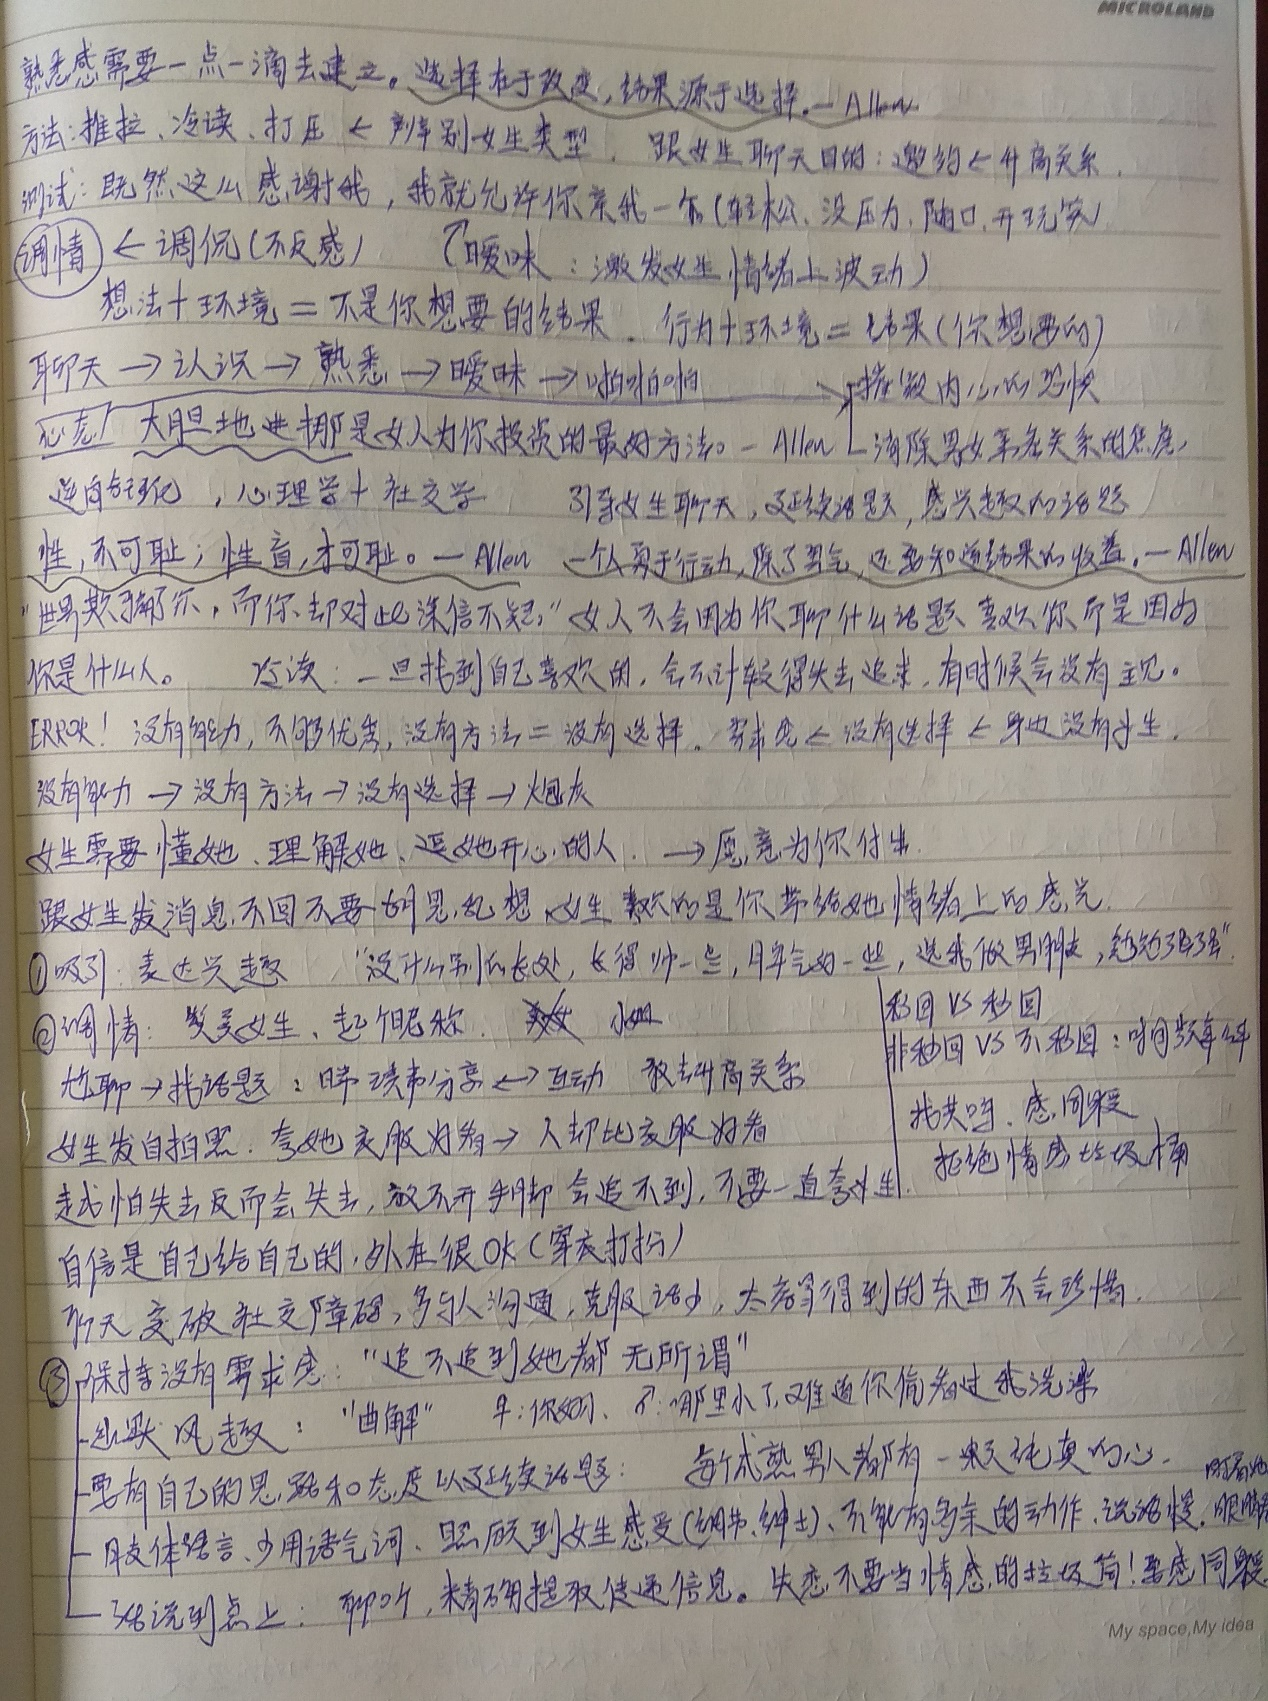 MICROLAND
熟悉感需要一点一滴去建立。选择在于改变，结果源于选择。— Allen
方法：推拉、冷读、打压 ← 判别女生类型. 跟女生聊天目的：邀约 ← 升高关系.
测试：既然这么感谢我，我就允许你亲我一下（轻松、没压力、随口、开玩笑）
调情 ← 调侃（不反感） （暧昧：激发女生情绪上波动）
想法＋环境＝不是你想要的结果. 行为＋环境＝结果（你想要的）
聊天 → 认识 → 熟悉 → 暧昧 → 啪啪啪 内心的恐惧
大胆地进挪是女人为你投资的最好方法。— Allen 消除男女关系的焦虑,
逆向 化，心理学＋社交学 引导女生聊天，延续话题，感兴趣的话题
性，不可耻；性盲，才可耻。— Allen 一个人勇于行动，除了勇气，还要知道结果的收益。— Allen
“世界欺骗了你，而你却对此深信不疑。” 女人不会因为你聊什么话题喜欢你而是因为
你是什么人。 冷读：一旦找到自己喜欢的，会不计较得失去追求，有时候会没有主见。
ERROR！没有能力，不够优秀，没有方法＝没有选择. 需求感 ← 没有选择 ← 身边没有女生.
没有能力 → 没有方法 → 没有选择 → 炮灰
女生需要懂她、理解她、逗她开心的人. → 愿意为你付出.
跟女生发消息不回不要胡思乱想，女生喜欢的是你带给她情绪上的感觉.
①吸引：表达兴趣 “没什么别的长处，长得帅一些，脾气好一些，选我做男朋友，勉勉强强”.
②调情：赞美女生、起个昵称.
秒回 VS 秒回
非秒回 VS 不秒回：时间频率
尬聊 → 找话题：日常琐事分享 ↔ 互动 敢去升高关系
找共鸣、感同身受
女生发自拍照. 夸她衣服好看 → 人却比衣服好看
拒绝情感垃圾桶
越怕失去反而会失去，放不开手脚会追不到，不要一直夸女生.
自信是自己给自己的，外在很OK（穿衣打扮）
聊天突破社交障碍，多与人沟通，克服话少，太容易得到的东西不会珍惜.
③保持没有需求感：“追不追到她都无所谓”
幽默风趣：“曲解” ♀：你好小、♂：哪里小了，难道你偷看过我洗澡
要有自己的思路和态度以延续话题： 每个成熟男人都有一颗纯真的心.
肢体语言、少用语气词、照顾到女生感受（细节、绅士）、不能有多余的动作、说话慢.
话说到点上：聊吖，精确提取传递信息。失恋不要当情感的垃圾筒！要感同身受
My space,My idea